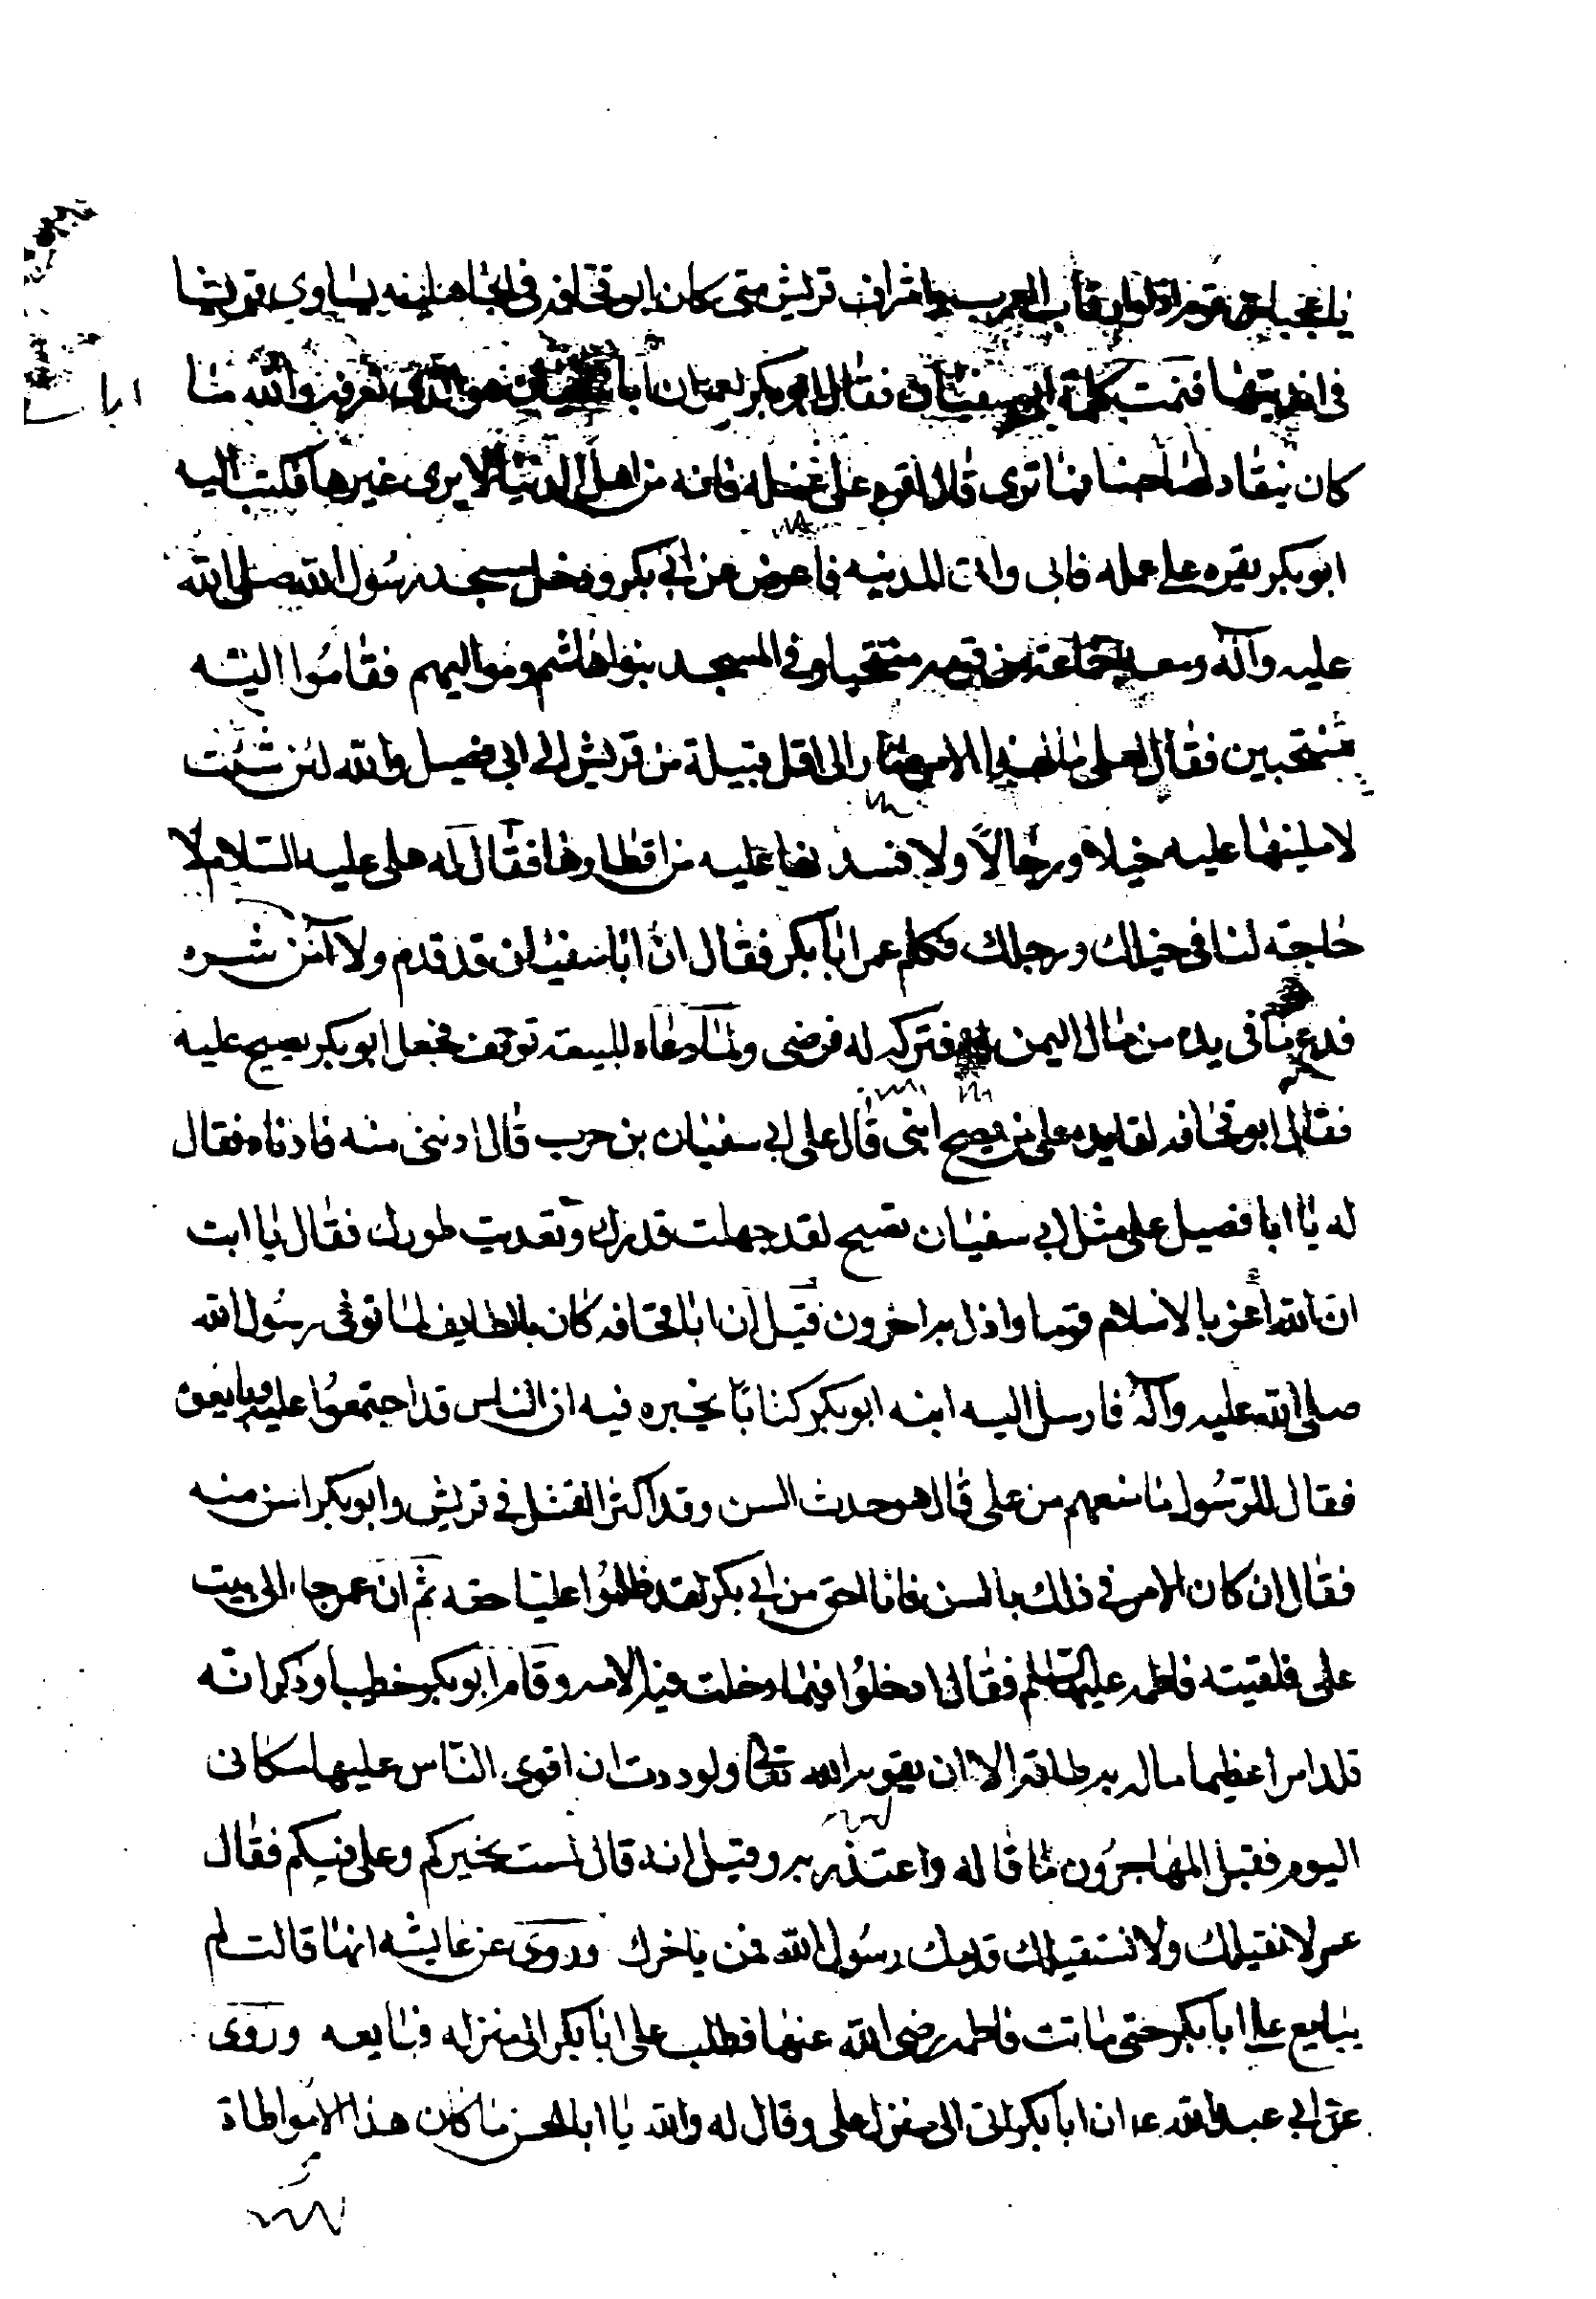 يا عجبا من قوم اذلوا رقاب العرب واشراف قريش متى كان ابو قحافه في الجاهليه يساوي قريشا
في انديتها فنمت كلمة ابي سفيان فقال ابو بكر لعمر ان ابا سفيان هو الذي تعرفه والله ما
كان ينقاد لصاحبنا فما ترى قال اقره على عمله فانه من اهل الدنيا لا يرى غيرها فكتب اليه
ابو بكر يقره على عمله فابى واتى المدينه فاعرض عن ابي بكر ودخل مسجد رسول الله صلى الله
عليه وآله ومعه جماعة من قومه منتحبا وفي المسجد بنو هاشم ومواليهم فقاموا اليه
منتحبين فقال لعلي ما الامر صار الى اقل قبيلة من قريش الى ابي فصيل والله لئن شئت
لاملينها عليه خيلا ورجالا ولا فسدنها عليه من اقطارها فقال له علي عليه السلام لا
حاجة لنا في خيلك ورجلك فكلم عمر ابا بكر فقال ان ابا سفيان قد قدم ولا آمن شره
فدع ما في يده من مال اليمن فتركه له فرضى ولما دعاه للبيعة توقف فجعل ابو بكر يصيح عليه
فقال ابو قحافه لقايده على من يصيح ابني قال على ابي سفيان بن حرب قال ادنني منه فادناه فقال
له يا ابا فصيل على مثل ابي سفيان تصيح لقد جهلت قدرك وتعديت طورك فقال يا ابت
ان الله اعز بالاسلام قوما واذل به اخرون قيل ان ابا قحافه كان بالطايف لما توفى رسول الله
صلى الله عليه وآله فارسل اليه ابنه ابو بكر كتابا يخبره فيه ان الناس قد اجتمعوا عليه وبايعوه
فقال للرسول ما منعهم من علي قال هو حدث السن وقد اكثر القتل في قريش وابو بكر اسن منه
فقال ان كان الامر في ذلك بالسن فانا احق من ابي بكر لقد ظلموا عليا حقه ثم ان عمر جاء الى بيت
علي فلقيته فاطمه عليها السلام فقال ادخلوا فيما دخلت فيه الامه وقام ابو بكر خطيبا وذكر انه
قلد امرا عظيما ماله به طاقة الا ان يقويه الله تعالى ولوددت ان اقوى الناس عليها مكاني
اليوم فقبل المهاجرون ما قاله واعتذر به وقيل انه قال لست بخيركم وعلي فيكم فقال
عمر لا نقيلك ولا نستقيلك قدمك رسول الله فمن ياخرك وروى عن عايشه انها قالت لم
يبايع علي ابا بكر حتى ماتت فاطمه رضى الله عنها فطلب علي ابا بكر الى منزله فبايعه وروى
عن ابي عبد الله ع ان ابا بكر اتى الى منزل علي وقال له والله يا ابا الحسن ما كان هذا الامر مواطاة